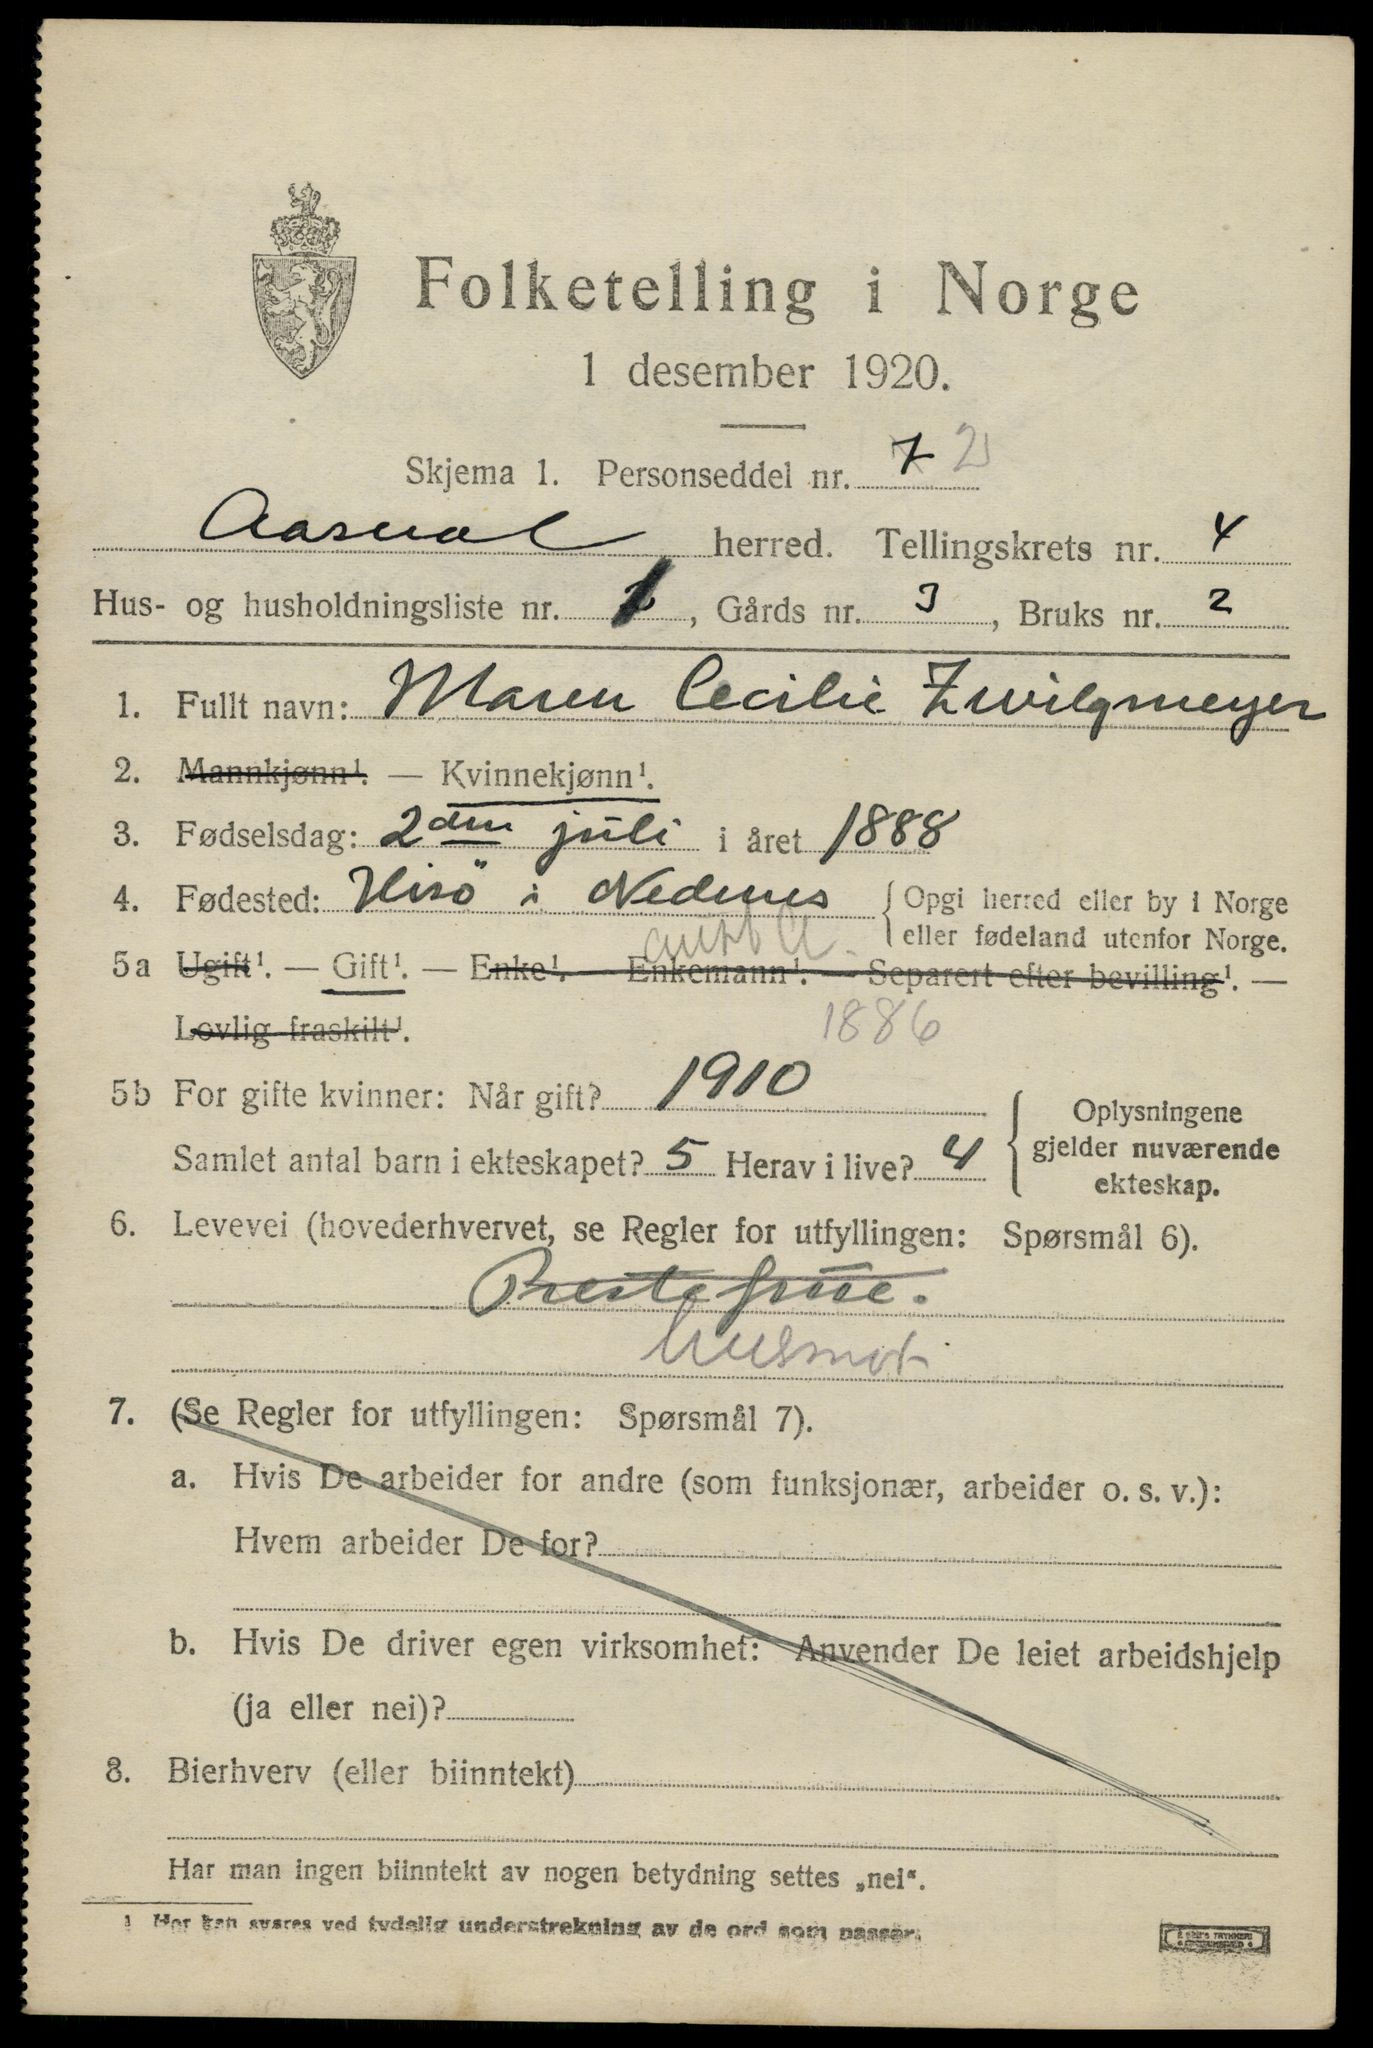 Folketelling i Norge
1 desember 1920.
Skjema 1. Personseddel nr. 7 2
Aasnæs herred. Tellingskrets nr. 4
Hus- og husholdningsliste nr. 1, Gårds nr. 3, Bruks nr. 2
1. Fullt navn: Maren Cecilie Zwilgmeyer
2. Mannkjønn¹. — Kvinnekjønn¹.
3. Fødselsdag: 2den juli i året 1888
4. Fødested: Hisö i Nedenes {Opgi herred eller by i Norge
eller fødeland utenfor Norge.
5a Ugift¹. — Gift¹. — Enke¹. — Enkemann¹. — Separert efter bevilling¹. —
Lovlig fraskilt¹.
1886
5b For gifte kvinner: Når gift? 1910
Samlet antal barn i ekteskapet? 5 Herav i live? 4
{Oplysningene
gjelder nuværende
ekteskap.
6. Levevei (hovederhvervet, se Regler for utfyllingen: Spørsmål 6).
Prestefrue.
husmor
7. (Se Regler for utfyllingen: Spørsmål 7).
a. Hvis De arbeider for andre (som funksjonær, arbeider o. s. v.):
Hvem arbeider De for?
b. Hvis De driver egen virksomhet: Anvender De leiet arbeidshjelp
(ja eller nei)?
8. Bierhverv (eller biinntekt)
Har man ingen biinntekt av nogen betydning settes „nei“.
1 Her kan svares ved tydelig understrekning av de ord som passer.